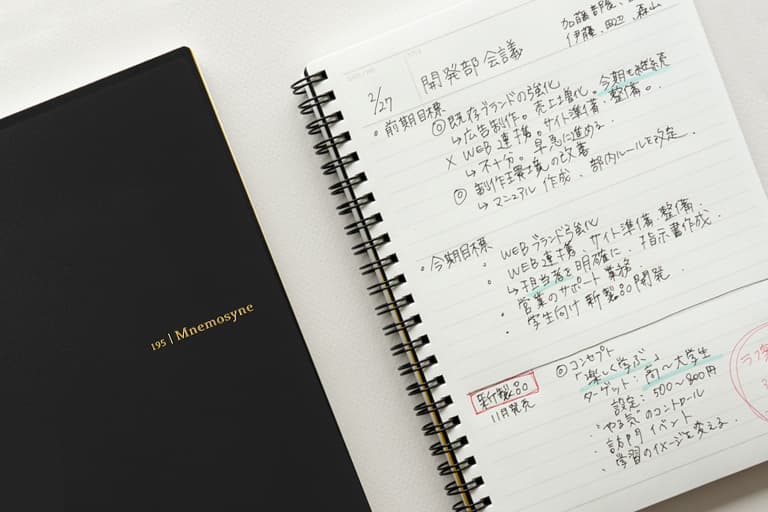 195 | Mnemosyne
加藤部長
伊藤、田辺、森山
開発部会議
2/27
・前期目標
◎ 既存ブランドの強化
↳ 広告制作。売上増化。今期も継続
× WEB連携。サイト準備・整備。
↳ 不十分。早急に進める
◎ 制作環境の改善
↳ マニュアル作成、部内ルールを改定
・今期目標
・WEBブランド強化
・WEB連携、サイト準備・整備・
↳ 担当者を明確に、指示書作成・
・営業のサポート業務
・学生向け新製品開発・
新製品
11月発売
◎ コンセプト
「楽しく学ぶ」
ターゲット:高〜大学生
設定:500〜800円
・"やる気"のコントロール
・訪門イベント
・学習のイメージを変える・
ラフ案